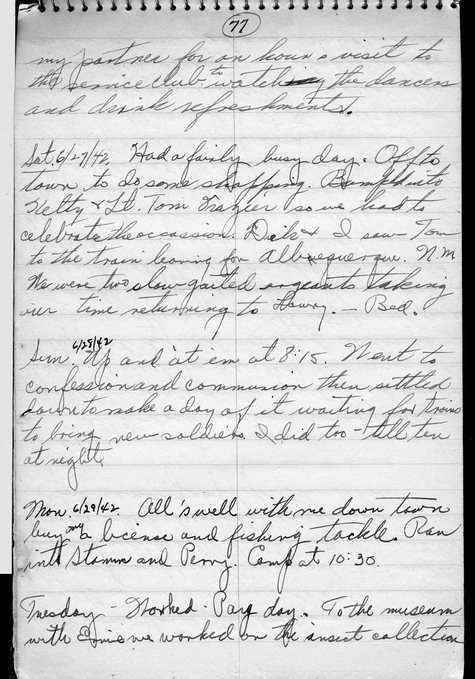 77
my partner for an hour's visit to
the service club to watch the dancers
and drink refreshments.
Sat. 6/27/42. Had a fairly busy day. Off to
town to do some shopping. Bumped into
Netty & Lt. Tom Frazier so we had to
celebrate the occassion. Dick & I saw Tom
to the train leaving for Albuquerque. N.M
We were two slow gaited sargeants taking
our time returning to Howry. — Bed.
Sun. 6/28/42 Up and at em at 8:15. Went to
confession and communion then settled
down to make a day of it waiting for trains
to bring new soldiers. I did too - till ten
at night.
Mon 6/29/42 All's well with me down town
buy my license and fishing tackle. Ran
into Stamm and Perry. Camp at 10:30.
Tuesday - Worked - Pay day. To the museum
with Ernie we worked on the insect collection